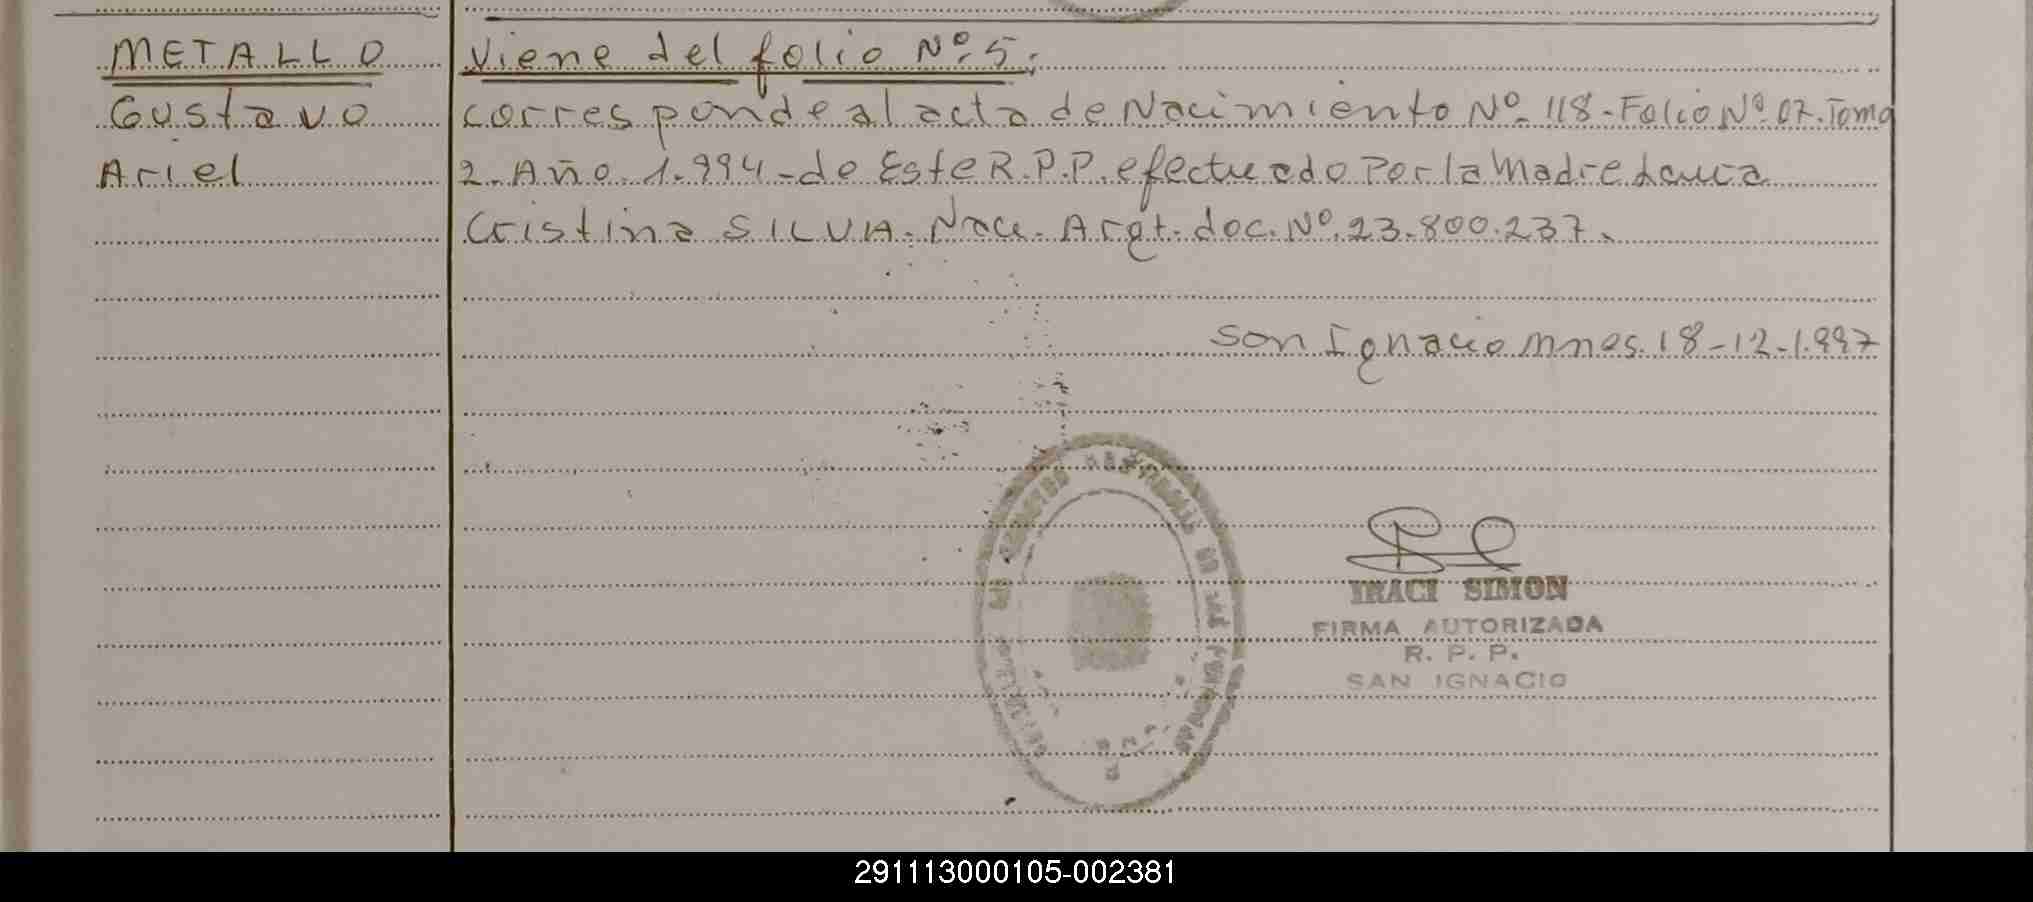 METALLO
Gustavo
Ariel
Viene del folio Nº 5.
corresponde al acta de Nacimiento Nº 118-Folio Nº 07. Tomo
2. Año. 1.994-de Este R.P.P. efectuado Por la Madre Laura
Cristina SILVA. Nac. Argt. doc. Nº 23.800.237.
San Ignacio mnes. 18-12-1.997
IRACI SIMON
FIRMA AUTORIZADA
R. P. P.
SAN IGNACIO
291113000105-002381